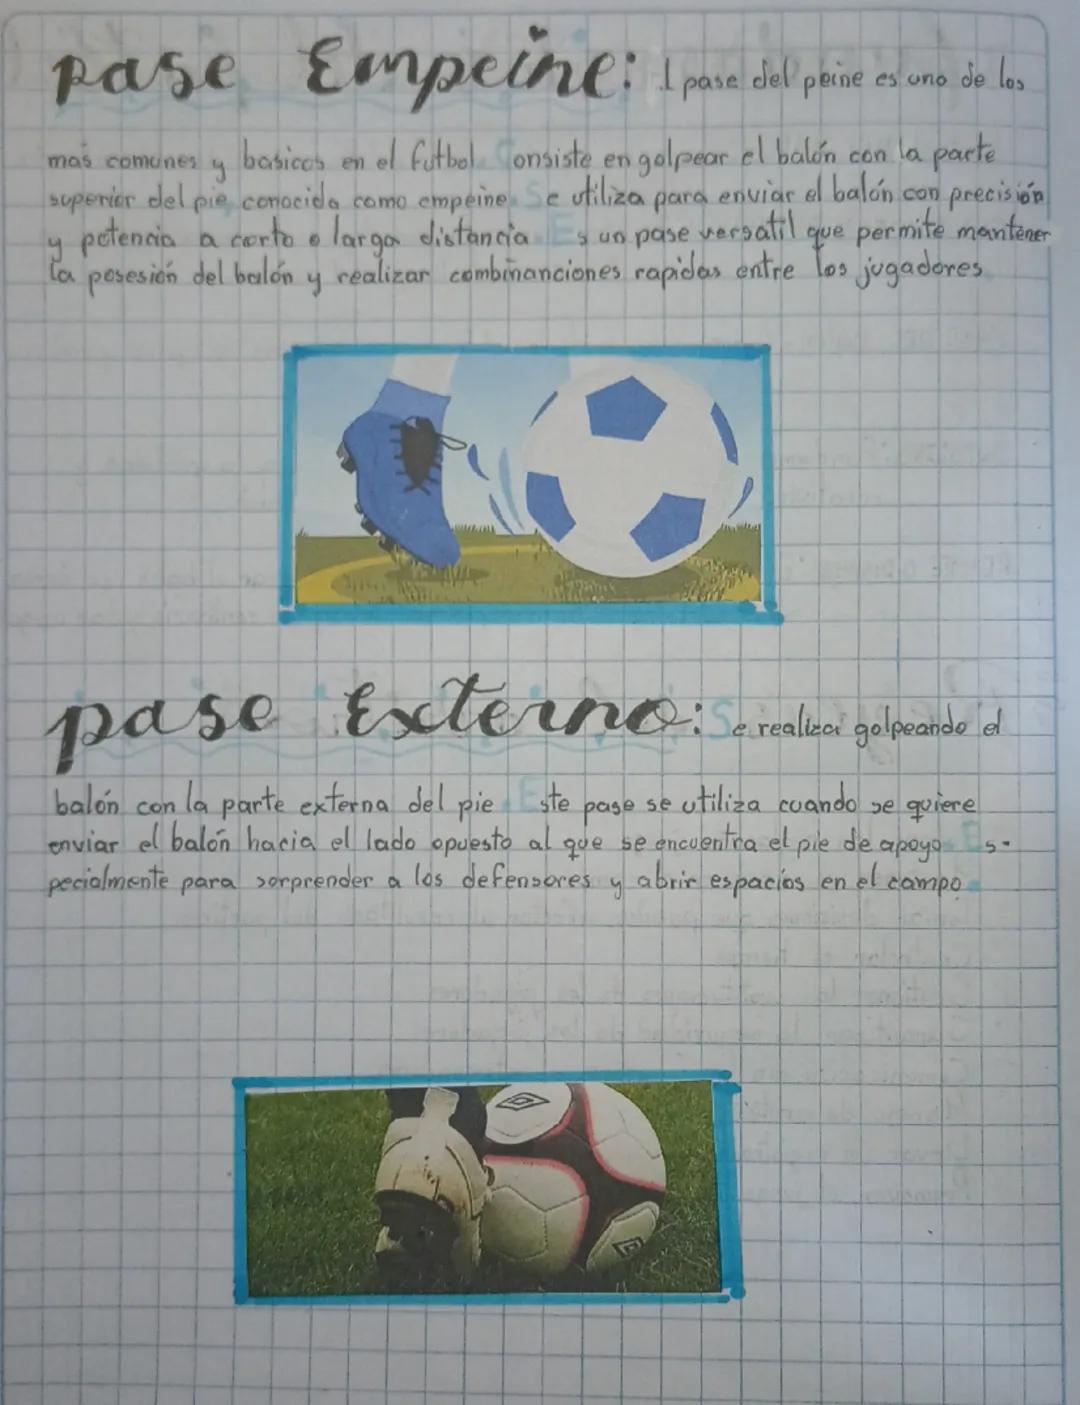 pase Empeine: l pase del peine es uno de los
mas comunes y basicos en el futbol Consiste en golpear el balón con la parte
superior del pie conocida como empeine. Se utiliza para enviar el balón con precisión
y potencia a corto o larga distancia Es un pase versatil que permite mantener
la posesión del balón y realizar combinanciones rapidas entre los jugadores
pase Externo: Se realiza golpeando el
balón con la parte externa del pie. Este pase se utiliza cuando se quiere
enviar el balón hacia el lado opuesto al que se encuentra el pie de apoyo. Es-
pecialmente para sorprender a los defensores y abrir espacios en el campo.